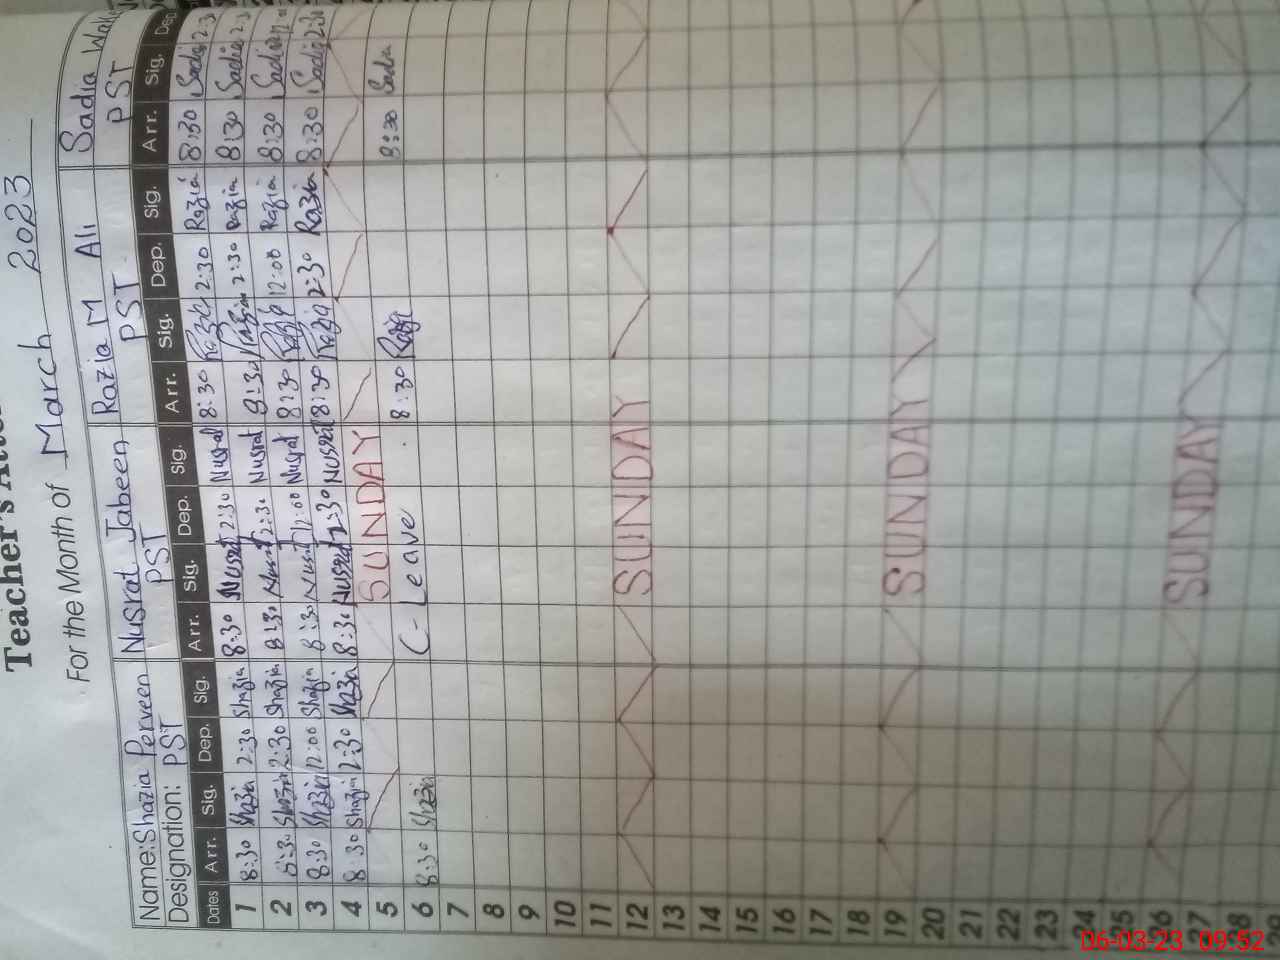 Teacher's
For the Month of March 2023
Name: Shazia Perveen Nusrat Jabeen Razia M Ali Sadia
Designation: PST PST PST PST
Dates Arr. Sig. Dep. Sig. Arr. Sig. Dep. Sig. Arr. Sig. Dep. Sig. Arr. Sig. Dep
1 8:30 Shazia 2:30 Shazia 8:30 Nusrat 2:30 Nusrat 8:30 Razia 2:30 Razia 8:30 Sadia 2:30
2 8:30 Shazia 2:30 Shazia 8:30 Nusrat 2:30 Nusrat 8:30 Razia 2:30 Razia 8:30 Sadia 2:3
3 8:30 Shazia 12:00 Shazia 8:30 Nusrat 12:00 Nusrat 8:30 Razia 12:00 Razia 8:30 Sadia
4 8:30 Shazia 2:30 Shazia 8:30 Nusrat 2:30 Nusrat 8:30 Razia 2:30 Razia 8:30 Sadia 2:30
5 SUNDAY
6 8:30 Shazia C- Leave 8:30 Razia 8:30 Sadia
7
8
9
10
11
12 SUNDAY
13
14
15
16
17
18
19 SUNDAY
20
21
22
23
24
25
26 SUNDAY
27
28
06-03-23 09:52